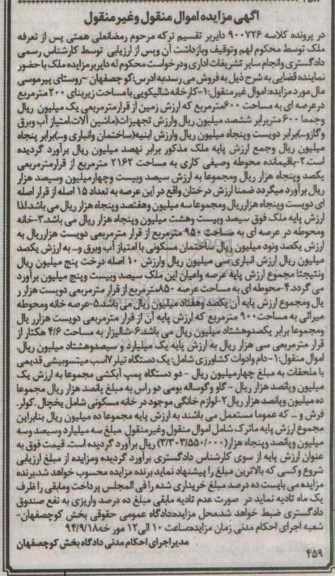 آگهی مزایده اموال منقول و غیر منقول
در پرونده کلاسه ۹۰۰۷۲۶ دایر بر تقسیم ترکه مرحوم رمضانعلی همتی پس از تعرفه
ملک توسط محکوم لهم و توقیف و بازداشت آن و پس از ارزیابی توسط کارشناس رسمی
دادگستری و انجام سایر تشریفات اداری و درخواست محکوم له دایر بر مزایده ملک با حضور
نماینده قضایی به شرح ذیل به فروش می رسد به ادرس: کوچصفهان - روستای پیرموسی
مال مورد مزایده: اموال غیر منقول: ۱- کارخانه شالیکوبی با مساحت زیربنای ۲۰۰ متر مربع
در عرصه ای به مساحت ۶۰۰ متر مربع که ارزش زمین از قرار متر مربعی یک میلیون ریال
و جمعا ۶۰۰ متر برابر ششصد میلیون ریال و ارزش تجهیزات (ماشین آلات امتیاز آب و برق
و گاز و..) برابر دویست و پنجاه میلیون ریال و ارزش ابنیه (ساختمان و انباری و...) برابر پنجاه
میلیون ریال و جمع ارزش پایه ملک مذکور برابر نهصد میلیون ریال برآورد گردیده
است ۲- باقیمانده محوطه وصیفی کاری به مساحت ۲۱۶۲ متر مربع از قرار متر مربعی
یکصد و پنجاه هزار ریال و مجموعا به ارزش سیصد و بیست و چهار میلیون و سیصد هزار
ریال برآورد میگردد ضمنا ارزش درختان واقع در این عرصه به تعداد ۱۵ اصله از قرار اصله
ای دویست و پنجاه هزار ریال و مجموعا سه میلیون و هفتصد و پنجاه هزار ریال می باشد لذا
ارزش پایه ملک فوق سیصد و بیست و هشت میلیون و پنجاه هزار ریال می باشد. ۳- خانه
و محوطه در عرصه ای به مساحت ۹۵۰ متر مربع از قرار متر مربعی دویست هزار ریال به
ارزش یکصد و نود میلیون ریال ساختمان مسکونی با امتیاز آب و برق و... به ارزش یکصد
میلیون ریال ارزش انباری سی میلیون ریال و ارزش ۱۰ اصله درخت پنج میلیون ریال
و نتیجتا مجموع ارزش پایه عرصه و اعیان این ملک سیصد و بیست و پنج میلیون برآورد
می گردد. ۴- محوطه ای به مساحت عرصه ۸۵۰ متر مربع از قرار متر مربعی دویست هزار ر
یال و مجموع ارزش پایه آن یکصد و هفتاد میلیون ریال می باشد. ۵- عرصه خانه و محوطه
میراثی به مساحت ۹۰۰ متر مربع که ارزش پایه آن از قرار متر مربعی دویست هزار ریال
و مجموعا برابر یکصد و هشتاد میلیون ریال می باشد ۶- شالیزار به مساحت ۴/۶ هکتار از
قرار متر مربعی سی هزار ریال به ارزش پایه یک میلیارد و سیصد و هشتاد میلیون ریال.
اموال منقول: ۱- دام و ادوات کشاورزی شامل: یک دستگاه تیلر ۷ اسب میتسوبیشی قدیمی
با ملحقات به مبلغ چهار میلیون ریال - دو دستگاه پمپ آبکشی مجموعا به ارزش یک
میلیون و پانصد هزار ریال - گاو و گوساله بومی دو راس به مبلغ
ده میلیون و پانصد هزار ریال ۲- لوازم خانگی موجود در خانه مسکونی شامل یخچال، کولر،
فرش و ... که عموما مستعمل می باشند به ارزش پایه مجموعا ده میلیون ریال بنابراین
مجموع ارزش پایه ماترک شامل اموال منقول و غیر منقول مبلغ سه میلیارد و سیصد و سه
میلیون و پانصد و پنجاه هزار ریال برآورد گردیده است قیمت فوق به
عنوان ارزش پایه از سوی کارشناس دادگستری برآورد گردیده و مزایده از مبلغ ارزیابی
شروع و کسی که بالاترین مبلغ را پیشنهاد نماید برنده مزایده محسوب خواهد شد. برنده
مزایده می بایست ده درصد مبلغ خریداری شده را فی المجلس پرداخت و مابقی را ظرف
یک ماه تادیه نماید در صورت عدم تادیه مابقی مبلغ ده درصد واریزی به نفع صندوق
دادگستری ضبط خواهد شد. محل مزایده: دادگاه عمومی حقوقی بخش کوچصفهان -
شعبه اجرای احکام مدنی زمان مزایده: ساعت ۱۰ الی ۱۲ مورخه ۹۴/۹/۱۸
مدیر اجرای احکام مدنی دادگاه بخش کوچصفهان
۴۵۹